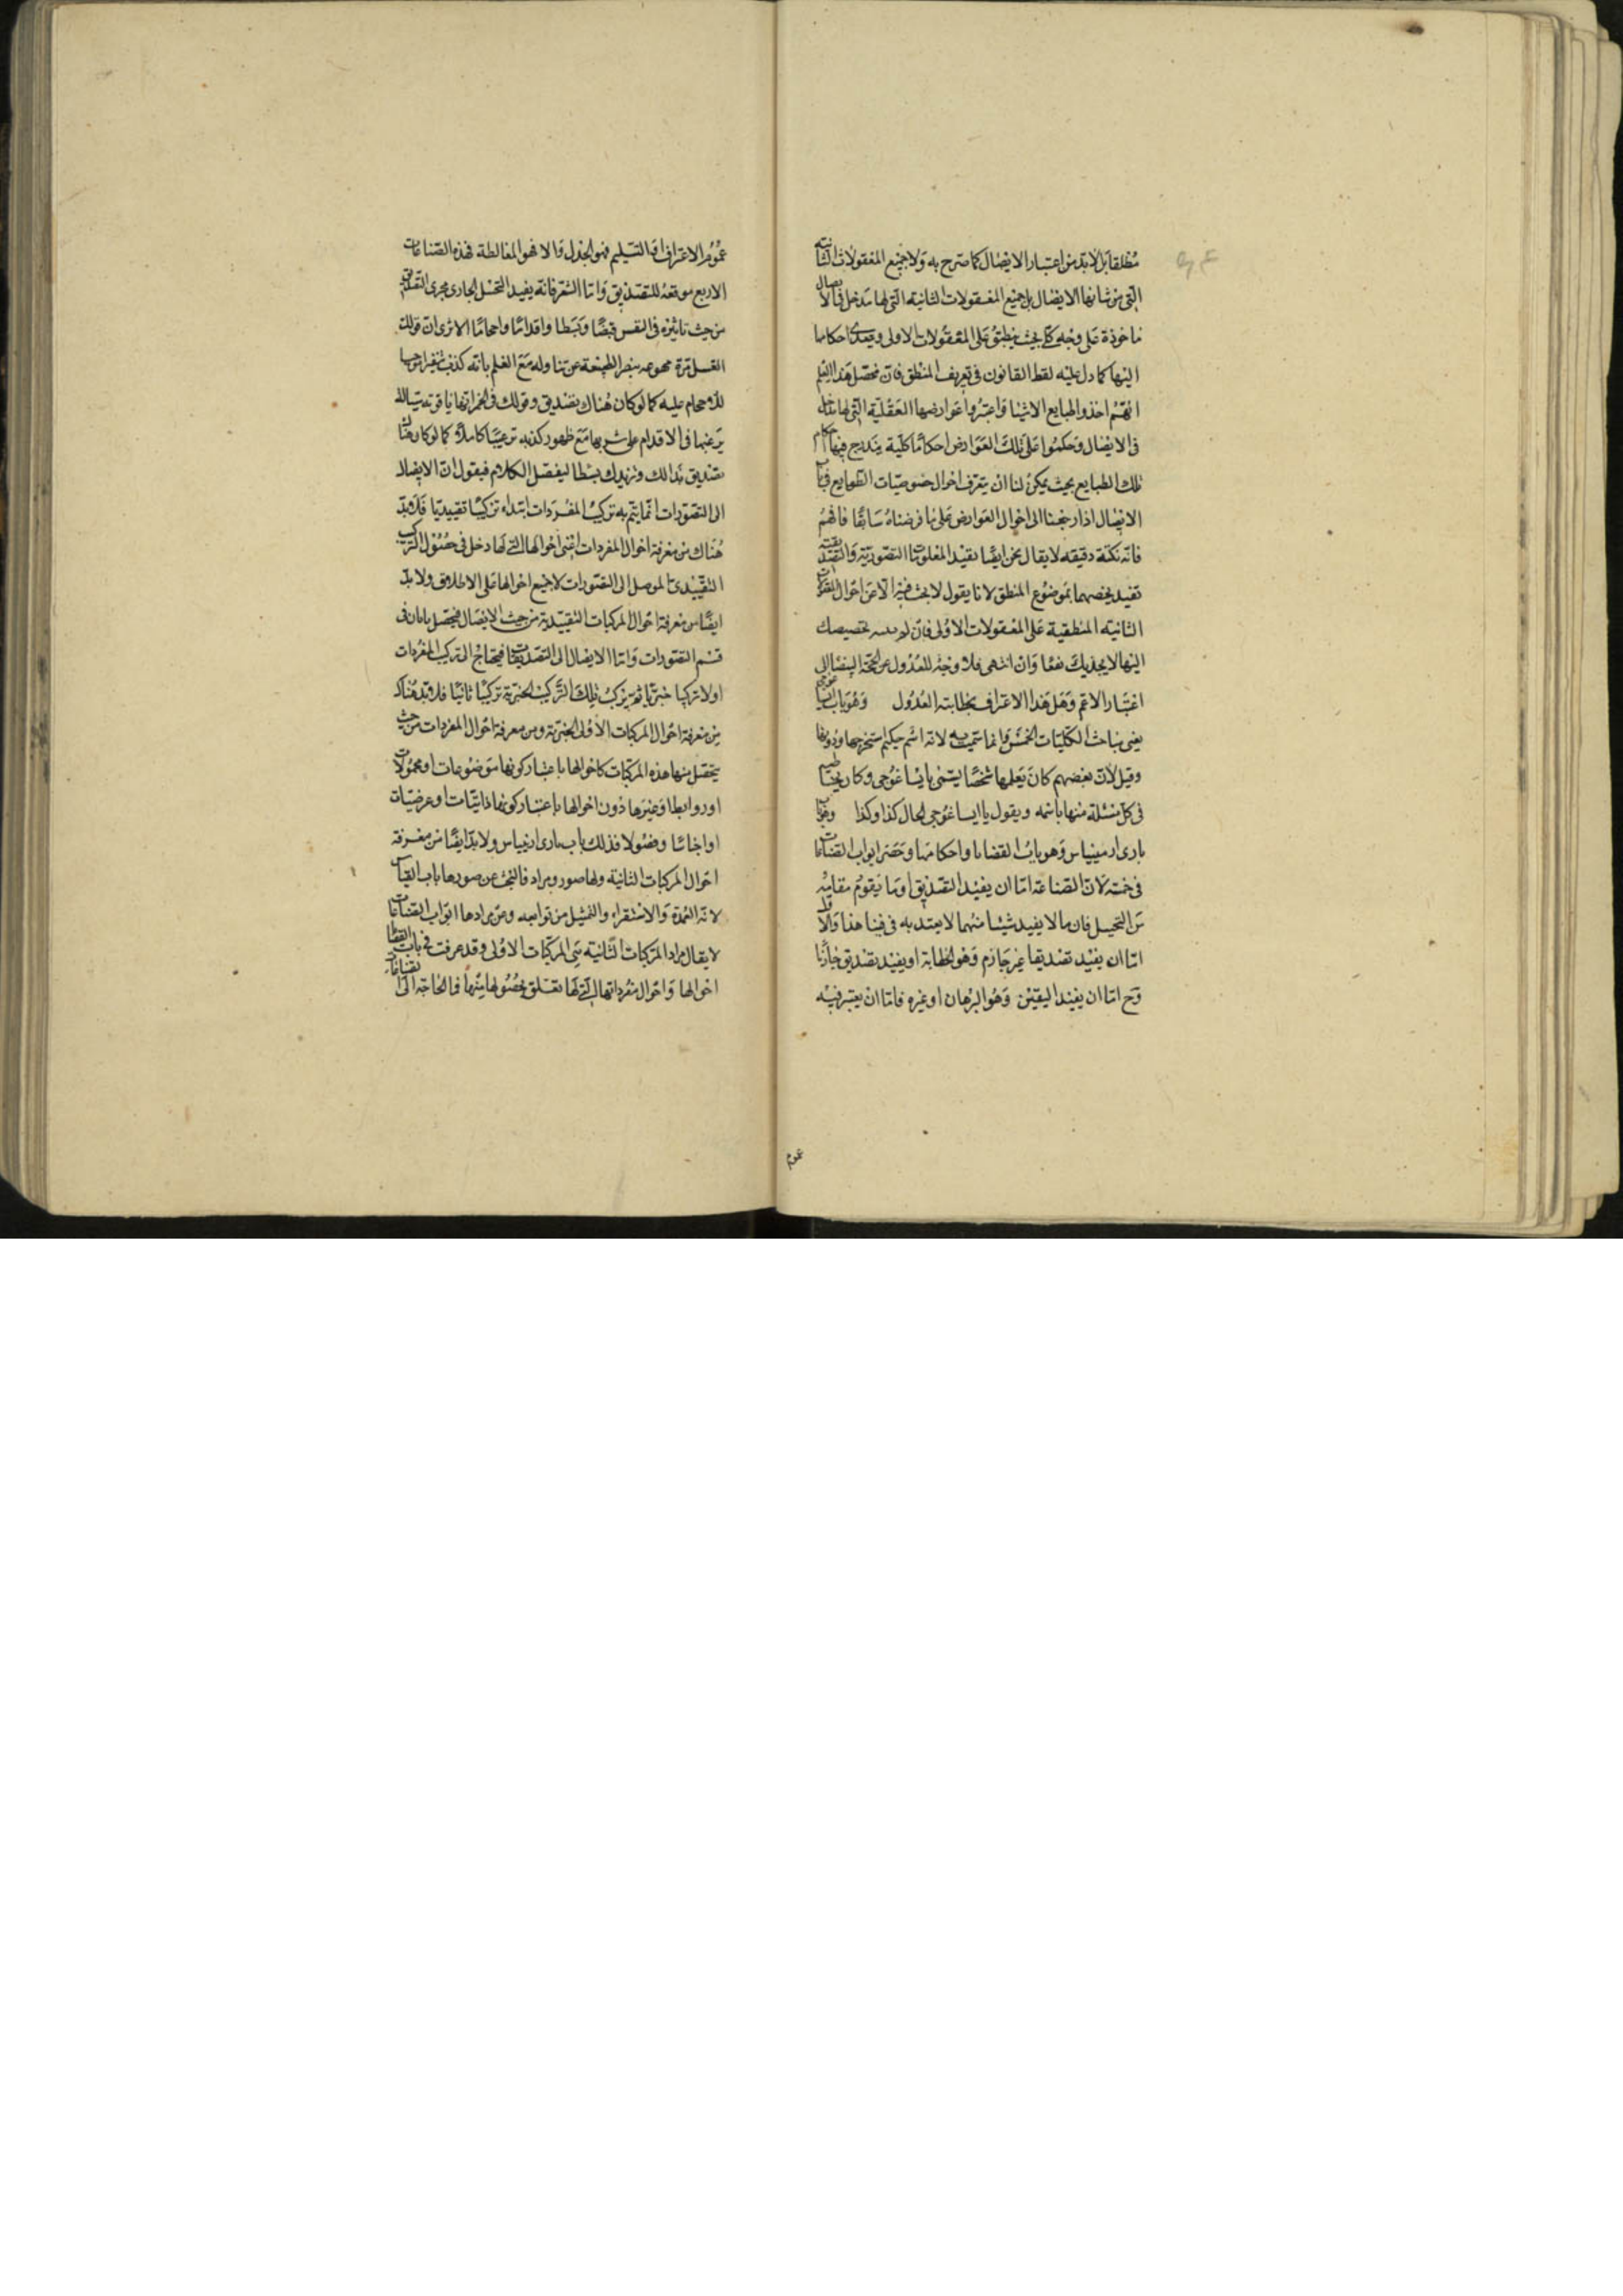 مطلقا بل لابد من اعتبار الايصال كما صرح به ولا جميع المعقولات الثانية
التى من شانها الايصال بل جميع المعقولات الثانية التى لها مدخل فى الايصال
ماخوذة على وجه كلى بحيث ينطبق على المعقولات الاولى ويتعدى احكامها
اليها كما دل عليه لفظ القانون فى تعريف المنطق فان محصل هذا العلم
انهم اخذوا طبايع الاشيا واعتبروا عوارضها العقلية التى لها مدخل
فى الايصال وحكموا على تلك العوارض احكاما كلية يندرج فيها احكام
تلك الطبايع بحيث يمكن لنا ان يتعرف احوال خصوصيات الطبايع فى باب
الايصال اذا رجعنا الى احوال العوارض على ما فرضناه سابقا فافهم
فانه نكتة دقيقه لا يقال نحن ايضا نقيد المعلومات التصورية والتصديقية
تقييد يخصهما بموضوع المنطق لانا يقول لا بحث فيه الا عن احوال المعقولات
الثانيه المنطقية على المعقولات الاولى فان لم تخصيصك
اليها لا يجديك نفعا وان انتهى فلا وجه للعدول عن الى
اعتبار الاعم وهل هذا الا اعتراف بخطابته العدول وهو باب ايساغوجى
يعنى مباحث الكليات الخمس وانما سميت به لانه اسم حكيم استخرجها ودونها
وقيل لان بعضهم كان يعلمها شخصا يسمى بايساغوجى وكان يخاطبه
فى كل مسئلة منها باسمه ويقول يا ايساغوجى الحال كذا وكذا وهو باب
بارى ارمينياس وهو باب القضايا واحكامها وحصر ابواب الصناعات
فى خمسة لان الصناعة اما ان يفيد التصديق او ما يقوم مقامه
من التخييل فان ما لا يفيد شيئا منهما لا يعتد به فى فننا هذا والاول
اما ان يفيد تصديقا غير جازم وهو الخطابة او يفيد تصديق جازما
وح اما ان يفيد اليقين وهو البرهان او غيره فاما ان يعتبر فيه
عموم
عموم الاعتراف او التسليم فهو الجدل والا فهو المغالطة فهذه الصناعات
الاربع موقعة للتصديق واما الشعر فانه يفيد التخيل الجارى مجرى التصديق
من حيث تاثيره فى النفس قبضا وبسطا واقداما واحجاما الا ترى ان قولك
العسل مرة ينفر الطبيعة عن تناوله مع العلم بانه كذب تنفيرا موجبا
للاحجام عليه كما لو كان هناك تصديق وقولك فى الخمر انها ياقوته سيالة
يرغبها فى الاقدام على شربها مع ظهور كذبه ترغيبا كاملا كما لو كان هناك
تصديق بذلك ونزيدك بسطا ليفصل الكلام فيقول ان الايصال
الى التصورات انما يتم به تركيب المفردات ابتداء تركيبا تقييديا فلا بد
هناك من معرفة احوال المفردات اعنى احوالها التى لها دخل فى حصول التركيب
التقييدى الموصل الى التصورات لا جميع احوالها على الاطلاق ولا بد
ايضا من معرفة احوال المركبات التقييدية من حيث الايصال فيحصل بابان فى
قسم التصورات واما الايصال الى التصديقات فيحتاج الى تركيب المفردات
اولا تركيبا خبريا ثم يركب تلك التركيب الخبرية تركيبا ثانيا فلا بد هناك
من معرفة احوال المركبات الاولى الخبرية ومن معرفة احوال المفردات من حيث
يتحصل منها هذه المركبات كاحوالها باعتبار كونها موضوعات او محمولات
او روابطا وغيرها دون احوالها باعتبار كونها ذاتيات او عرضيات
او اجناسا وفصولا فذلك باب بارى ارمينياس ولا بد ايضا من معرفة
احوال المركبات الثانية ولها صور ومواد فالبحث عن صورها باب القياس
لانه العمدة والاستقراء والتمثيل من توابعه وعن موادها ابواب الصناعات
لا يقال مواد المركبات الثانية هى المركبات الاولى وقد عرفت فى باب القضايا
احوالها واحوال مفرداتها التى لها تعلق بحصولها منها فما الحاجة الى الصناعات